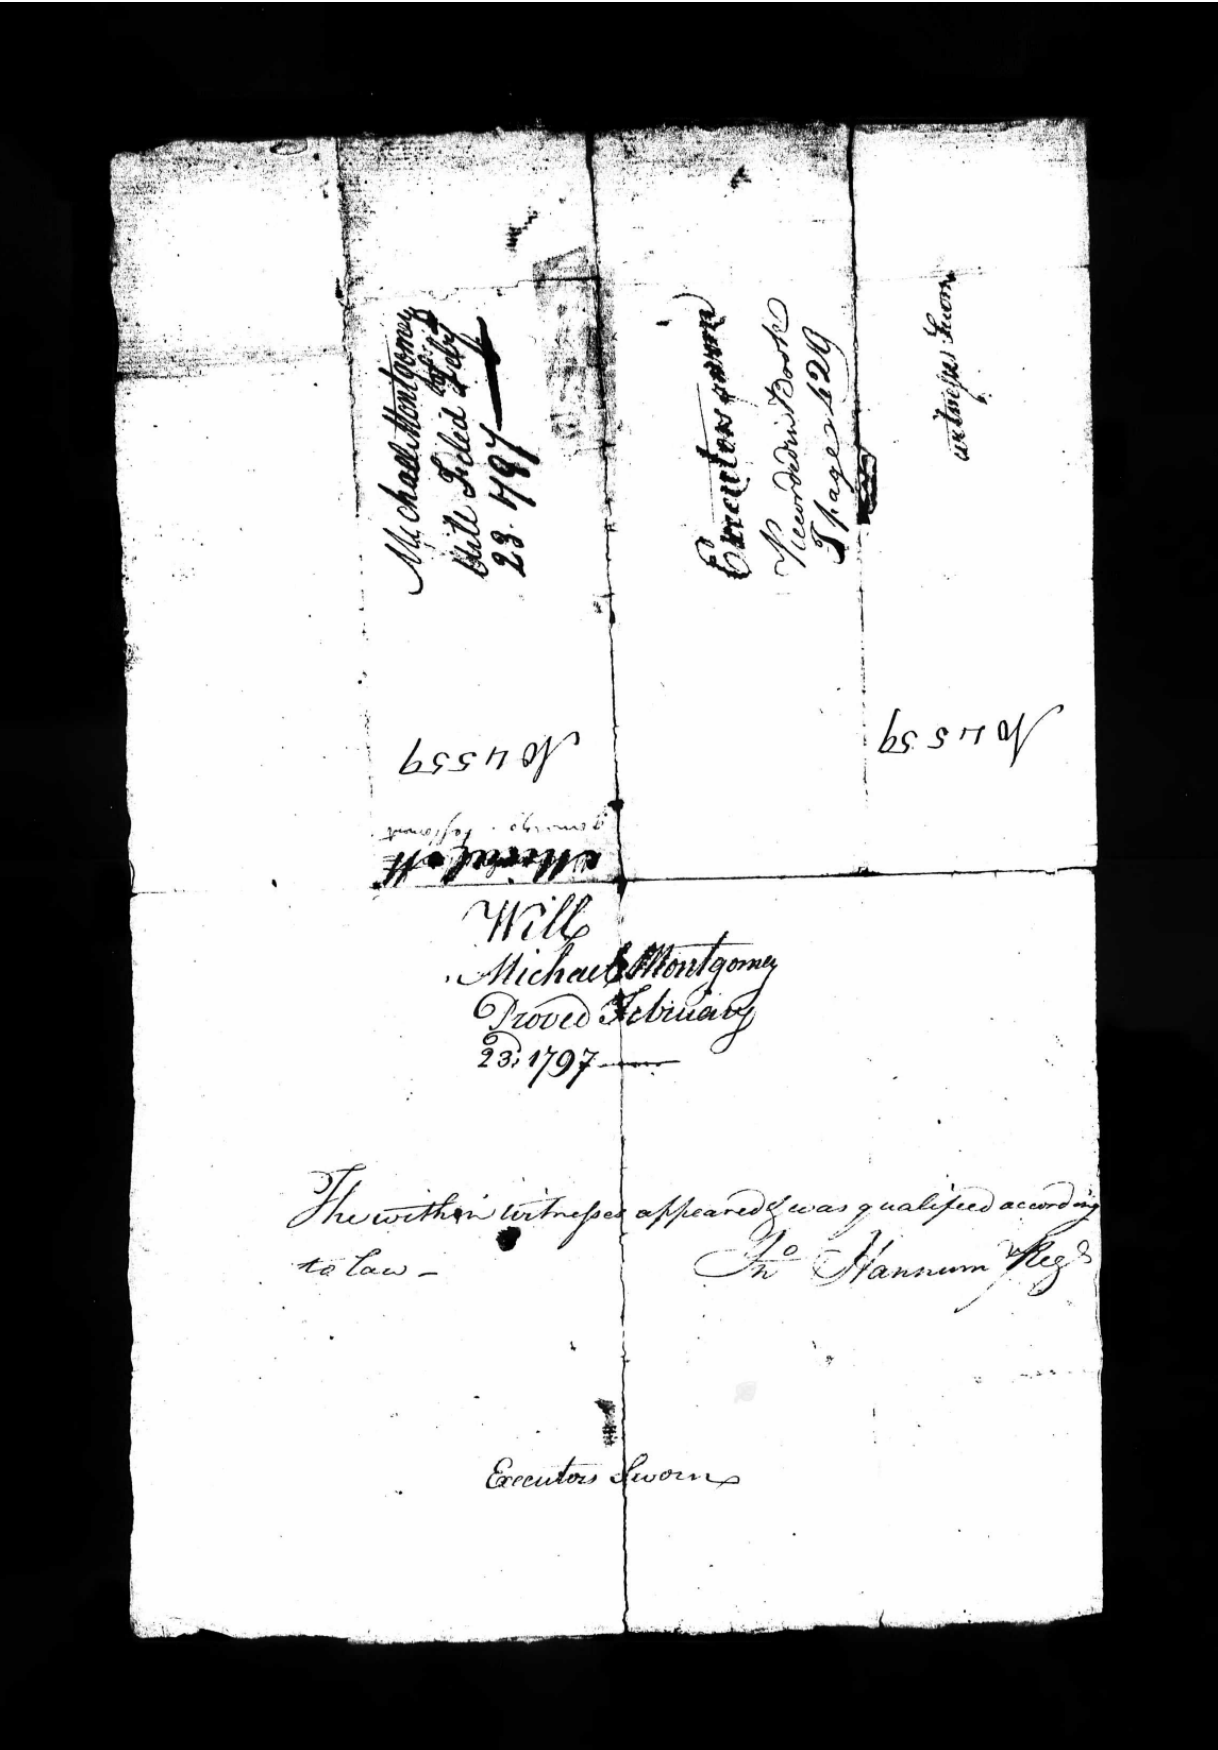 Michael Montgomery
Will Filed Feby
23. 1797
Executors sworn
Recorded in Book
J page 429
witnesses Sworn
No 4559
No 4559
Will
Michael Montgomey
Proved February
23; 1797
The within witnesses appeared & was qualifeed according
to Law -
Jno Hannum Regr
Executors Sworn